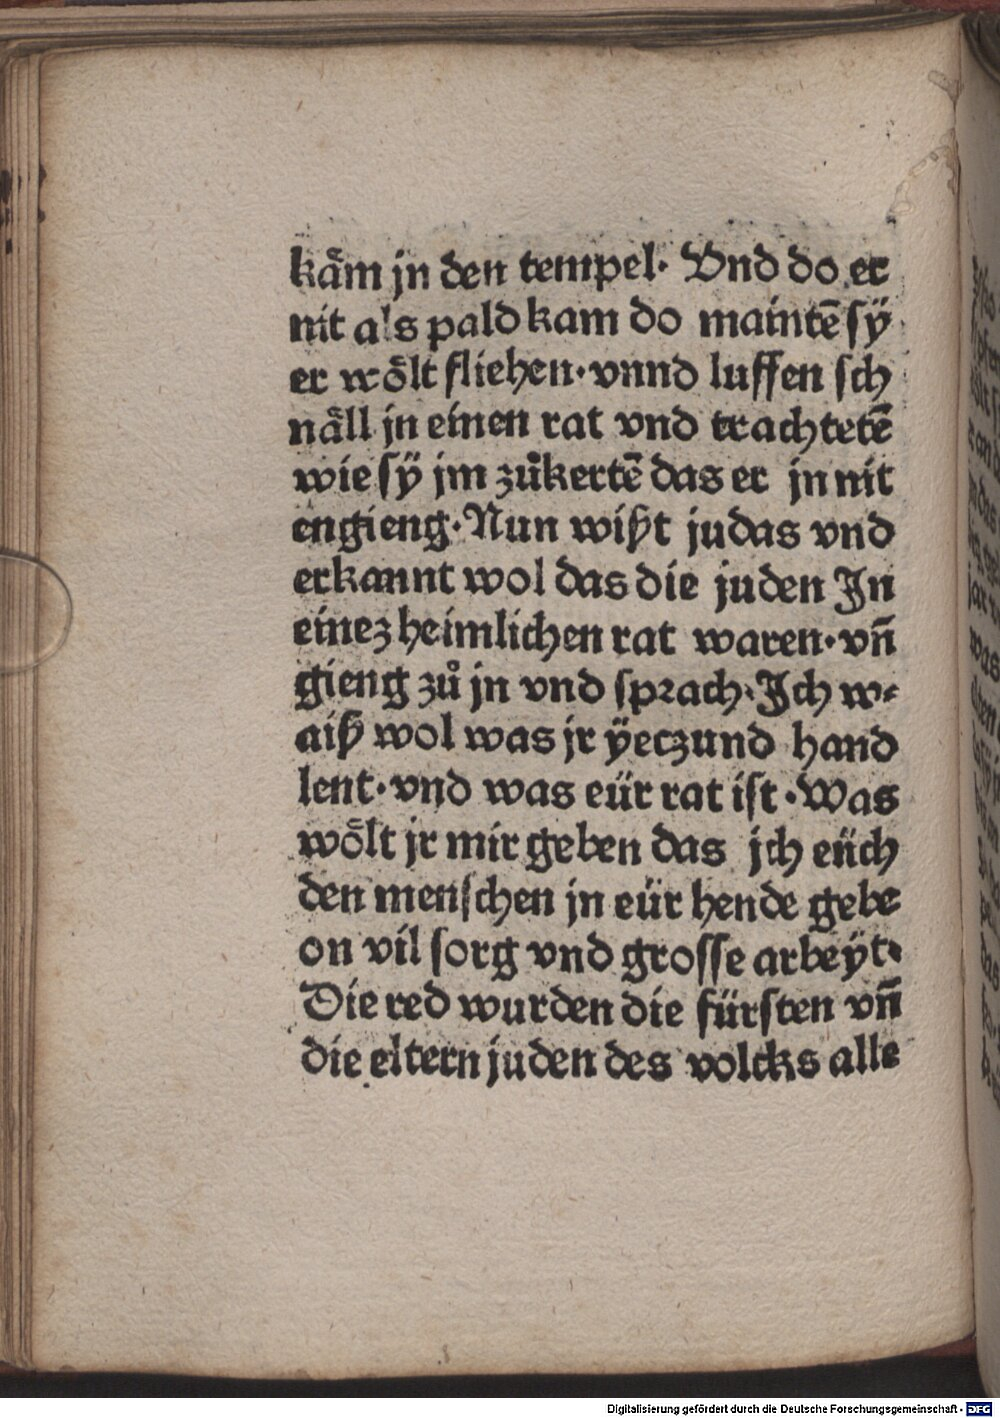 kaͤm jn den tempel· Vnd do er
nit als pald kam do maintē sÿ
er woͤlt fliehen· vnnd luffen sch
naͤll jn einen rat vnd trachtetē
wie sÿ jm zuͦkertē das er jn nit
engieng· Nun wißt judas vnd
erkannt wol das die juden In
einez heimlichen rat waren· vn̄
gieng zuͦ jn vnd sprach· Ich w⸗
aiß wol was jr ÿeczund hand
lent· vnd was eür rat ist· Was
woͤlt jr mir geben das jch eüch
den menschen jn eür hende gebe
on vil sorg vnd grosse arbeÿt·
Die red wurden die fürsten vn̄
die eltern juden des volcks alle
Digitalisierung gefördert durch die Deutsche Forschungsgemeinschaft - DFG